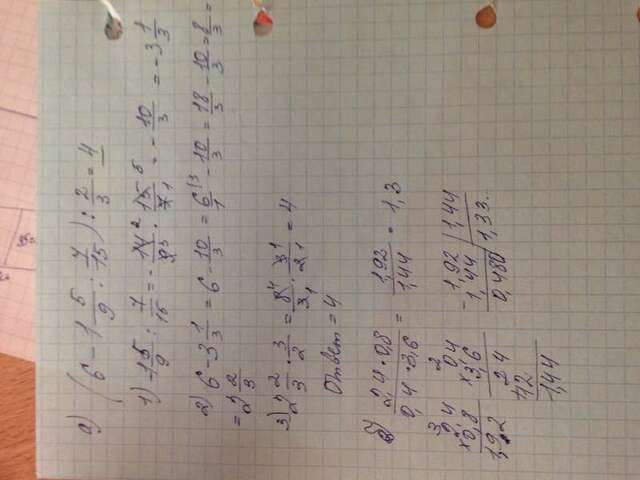 а) (6 - 1 5/9 : 7/15) : 2/3 = 4
1) -1 5/9 : 7/15 = - 14²/9³ · 15⁵/7₁ = - 10/3 = -3 1/3
2) 6 - 3 1/3 = 6 - 10/3 = 6/1 - 10/3 = 18/3 - 10/3 = 8/3 =
= 2 2/3
3) 2 2/3 · 3/2 = 8⁴/3₁ · 3¹/2₁ = 4
ответ = 4
б) 2,4 · 0,8 / 0,4 · 3,6 = 1,92 / 1,44 = 1,3
2,4 0,4 - 1,92 | 1,44
× 0,8 × 3,6 1,44 | 1,33..
1,92 24 0,480
12
1,44